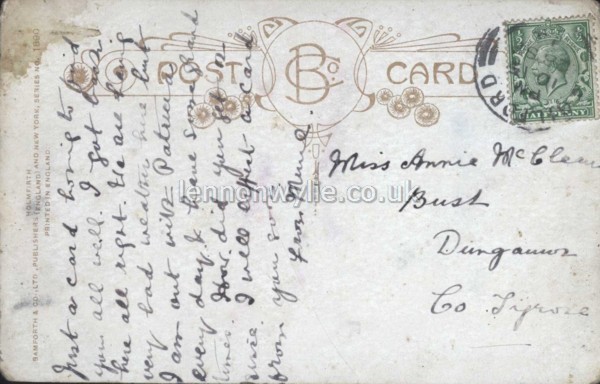 POST CARD
BCo.
HOLMFIRTH
BAMFORTH & CO. LTD., PUBLISHERS (ENGLAND) AND NEW YORK, SERIES NO.
PRINTED IN ENGLAND.
HALFPENNY
lennonwylie.co.uk
Just a card hoping to find
you all well. I got back
here all right. We are having
very bad weather here but
I am out with
every day, & home some hard
times. How did you get on
I will expect a card
from you soon
from
Miss Annie McClean
Bush
Dungannon
Co Tyrone